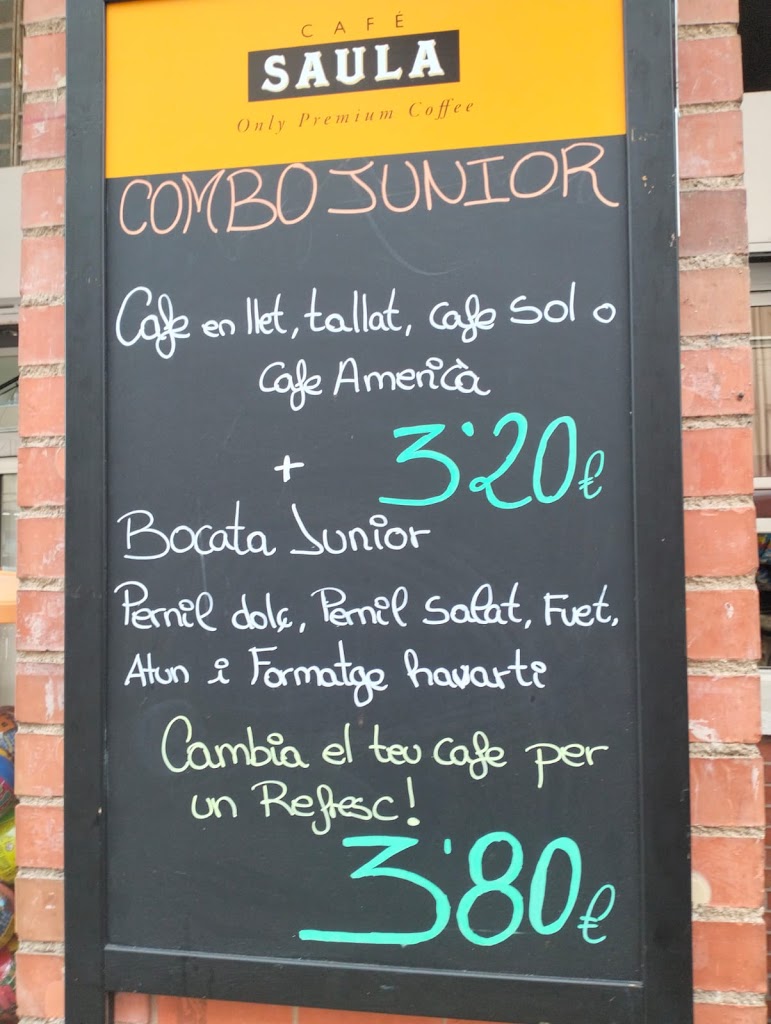 CAFÉ
SAULA
Only Premium Coffee
COMBO JUNIOR
Cafe en llet, tallat, cafe sol o
Cafe Americà
+ 3'20€
Bocata Junior
Pernil dolç, Pernil salat, Fuet,
Atun i Formatge havarti
Cambia el teu cafe per
un Refresc!
3'80€